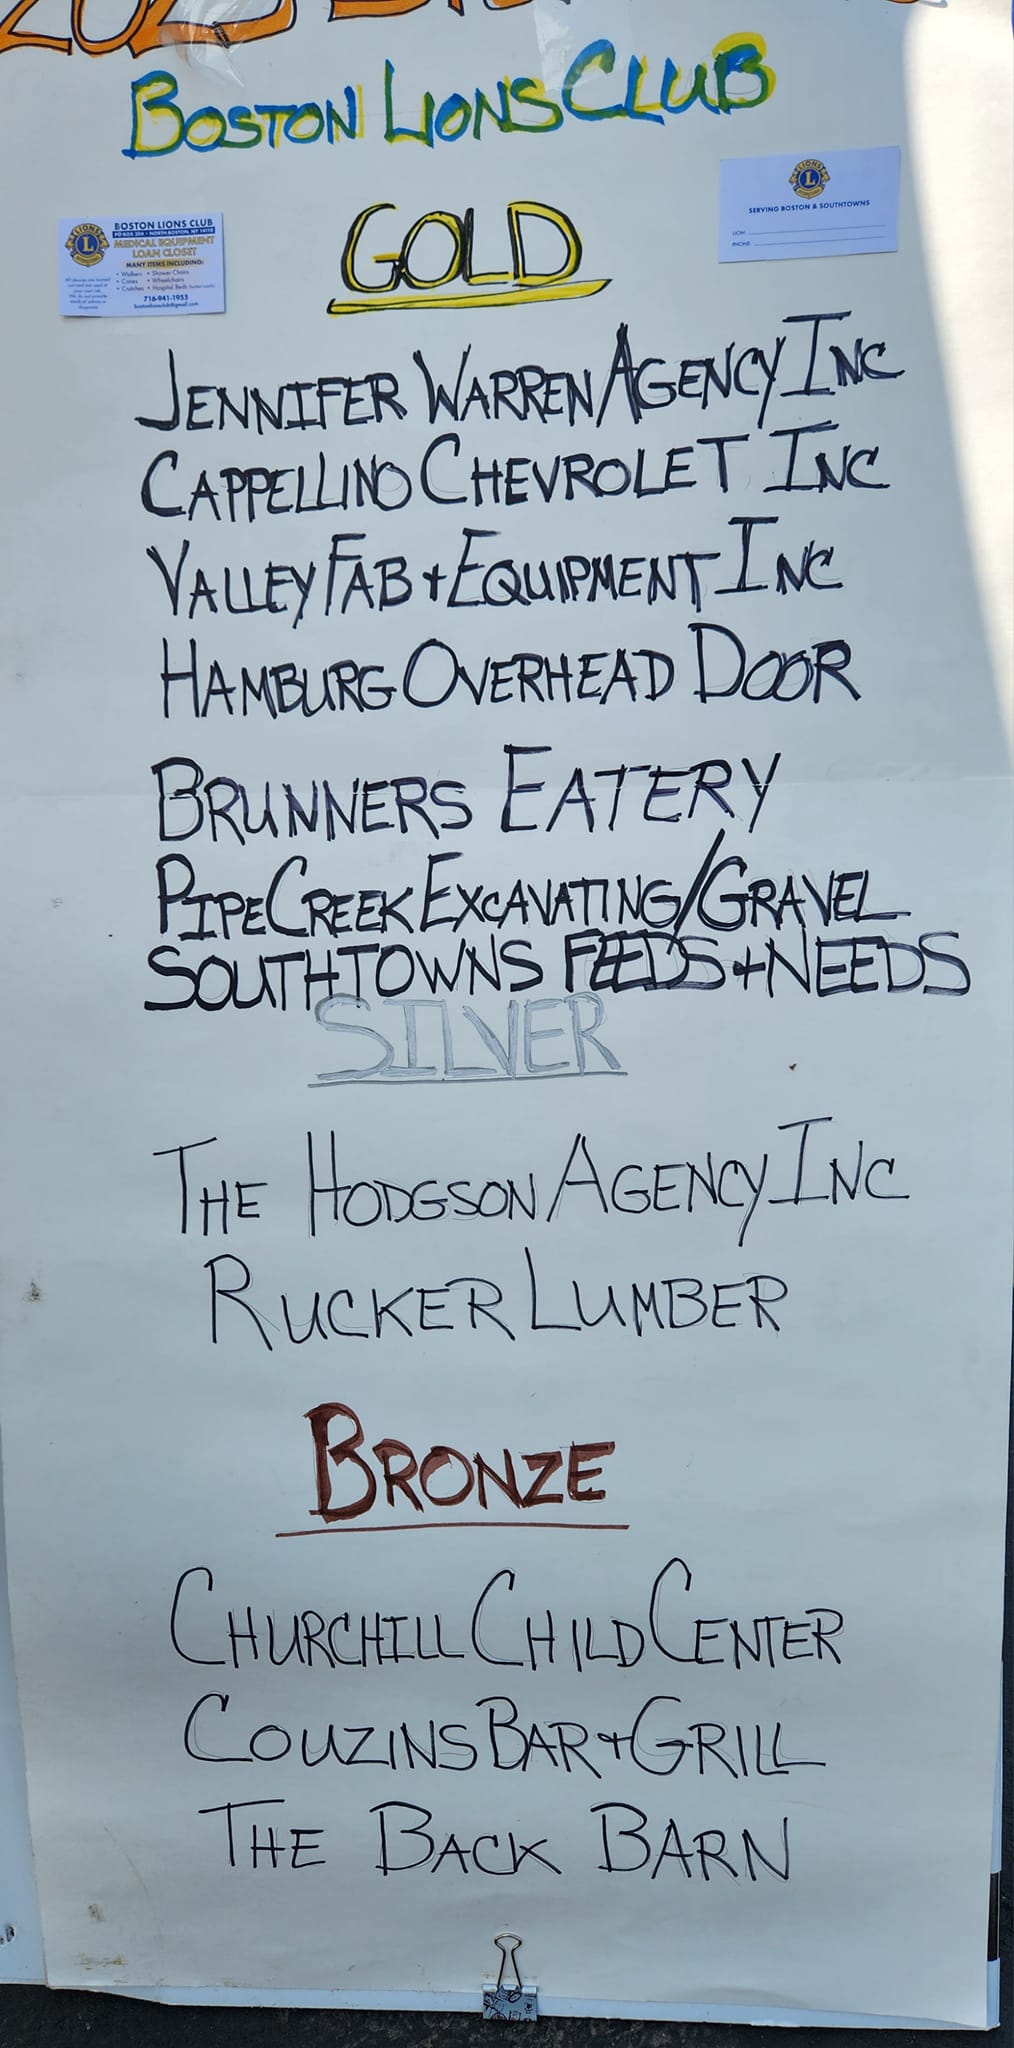 2023
BOSTON LIONS CLUB
LIONS
L
SERVING BOSTON & SOUTHTOWNS
LION
PHONE
GOLD
LIONS
L
BOSTON LIONS CLUB
PO BOX 304 • NORTH BOSTON, NY 14110
MEDICAL EQUIPMENT
LOAN CLOSET
MANY ITEMS INCLUDING:
• Walkers • Shower Chairs
• Canes • Wheelchairs
• Crutches • Hospital Beds
716-941-1953
bostonlionsclub@gmail.com
JENNIFER WARREN AGENCY INC
CAPPELLINO CHEVROLET INC
VALLEY FAB + EQUIPMENT INC
HAMBURG OVERHEAD DOOR
BRUNNERS EATERY
PIPE CREEK EXCAVATING/GRAVEL
SOUTHTOWNS FEEDS + NEEDS
SILVER
THE HODGSON AGENCY INC
RUCKER LUMBER
BRONZE
CHURCHILL CHILD CENTER
COUZINS BAR + GRILL
THE BACK BARN